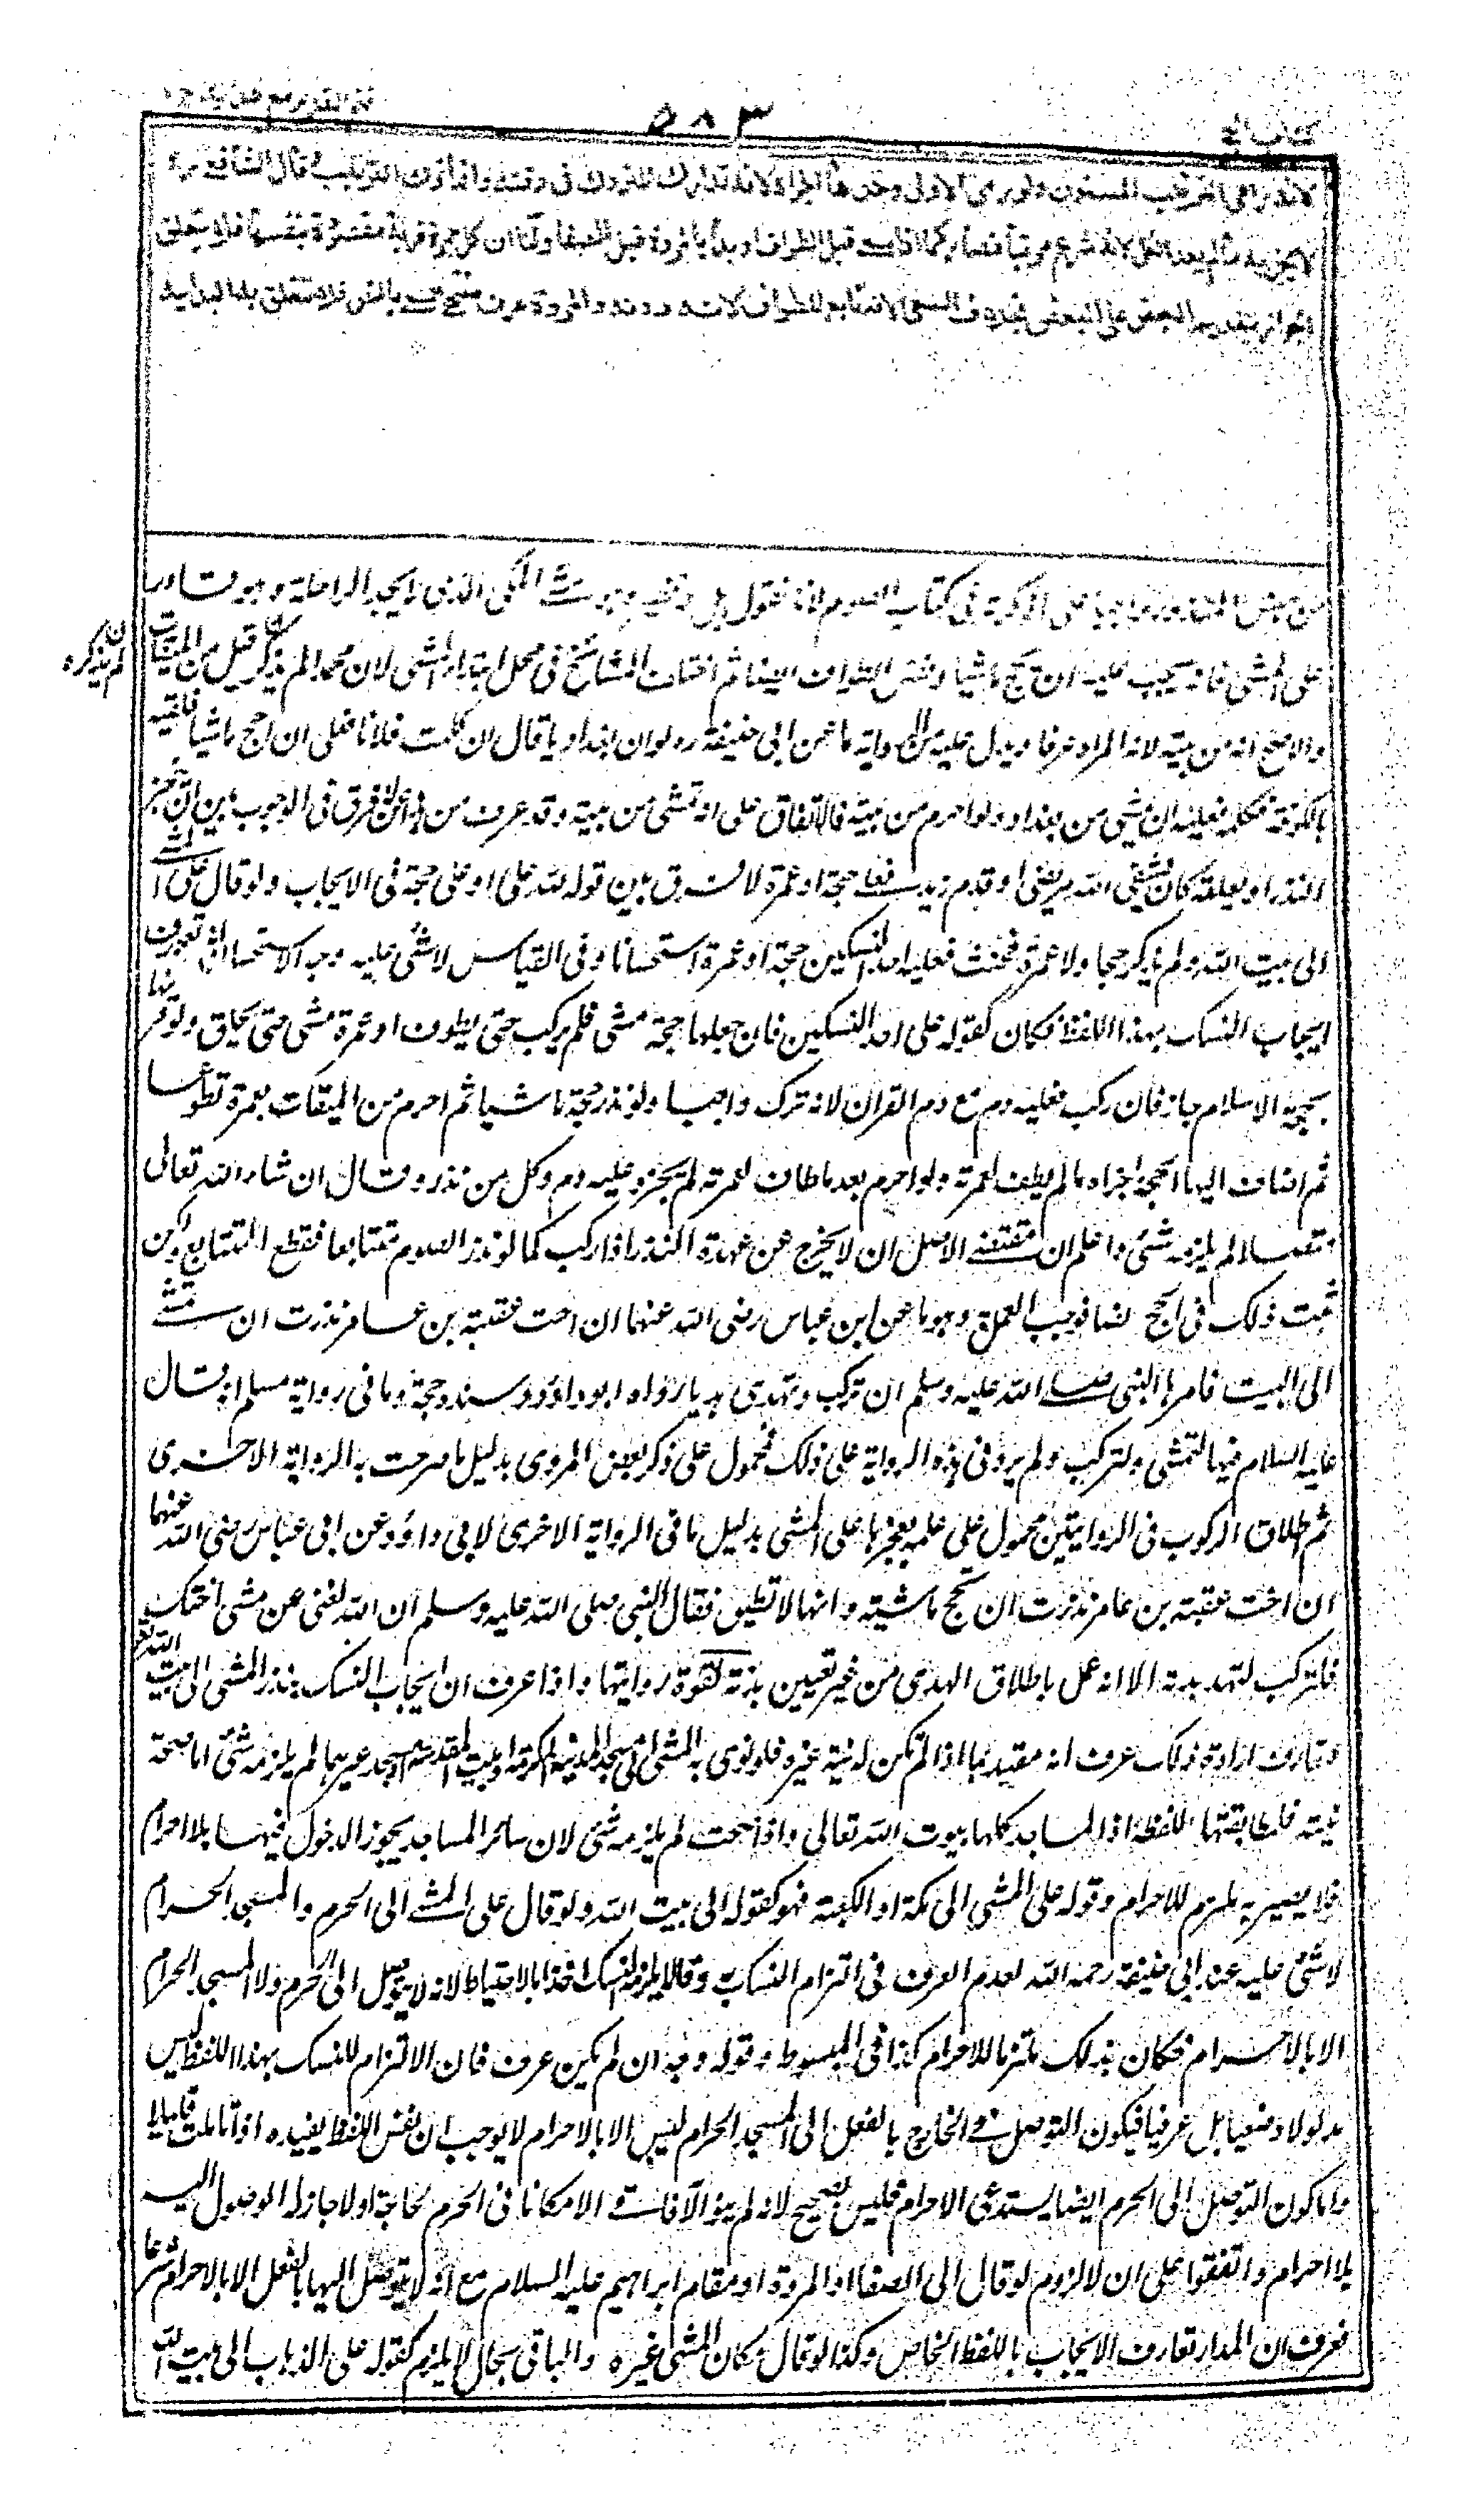 كتاب الحج
٥٨٣
فتح القدير مع
لانه راعى الترتيب المسنون ولو رمى الاولى وحدها اجزاه لانه تدارك المتروك فى وقته وانما ترك الترتيب وقال الشافعى رح
لا يجزيه ما لم يعد الكل لانه شرع مرتبا فصار كما اذا سعى قبل الطواف او بدأ بالمروة قبل الصفا ولنا ان كل جمرة قربة مقصودة بنفسها فلا يتعلق
الجواز بتقديم البعض على البعض بخلاف السعى لانه تابع للطواف لانه دونه والمروة عرف منتهى السعى بالنص فلا تتعلق بها البداية
من جنس المنذور واجبا على ما ذكرته فى كتاب الصوم لانا نقول بل له نظير وهو مشى المكى الذى لا يجد الراحلة وهو قادر
على المشى فانه يجب عليه ان يحج ماشيا ونفس الطواف ايضا ثم اختلف المشائخ فى محل ابتداء المشى لان محمدا لم يذكر قيل من الميقات
لم يذكره
والاصح انه من بيته لانه المراد عرفا ويدل عليه من الرواية ما عن ابى حنيفة رح لو ان بغداديا قال ان كلمت فلانا فعلى ان احج ماشيا فلقيه
بالكوفة فكلمه فعليه ان يمشى من بغداد ولو احرم من بيته فالاتفاق على انه يمشى من بيته وقد عرف من هذا ان لا فرق فى الوجوب بين ان ينجز
النذر او يعلقه كان شفى الله مريضى او قدم زيد فعلى حجة او عمرة لا فرق بين قوله لله على او على حجة فى الايجاب ولو قال على المشى
الى بيت الله ولم يذكر حجا ولا عمرة فحنث فعليه احد النسكين حجة او عمرة استحسانا وفى القياس لا شئ عليه وجه الاستحسان انه تعورف
ايجاب النسك بهذا اللفظ فكان كقوله على احد النسكين فان جعلها حجة مشى فلم يركب حتى يطوف او عمرة مشى حتى يحلق ولو قرنها
بحجة الاسلام جاز فان ركب فعليه دم مع دم القران لانه ترك واجبا ولو نذر حجة ماشيا ثم احرم من الميقات بعمرة تطوعا
ثم اضاف اليها الحجة اجزاه ما لم يطف لعمرته ولو احرم بعد ما طاف لعمرته لم يجزه وعليه دم وكل من نذر وقال ان شاء الله تعالى
متصلا لم يلزمه شئ واعلم ان مقتضى الاصل ان لا يخرج عن عهدة النذر اذا ركب كما لو نذر الصوم متتابعا فقطع التتابع لكن
ثبت ذلك فى الحج نصا فوجب العمل به وهو ما عن ابن عباس رضى الله عنهما ان اخت عقبة بن عامر نذرت ان تمشى
الى البيت فامرها النبى صلى الله عليه وسلم ان تركب وتهدى هديا رواه ابو داؤد وسنده حجة وما فى رواية مسلم انه قال
عليه السلام فيها لتمشى ولتركب ولم يزد فى هذه الرواية على ذلك فمحمول على ذكر بعض المروى بدليل ما صرحت به الرواية الاخرى
ثم اطلاق الركوب فى الروايتين محمول على علمه بعجزها على المشى بدليل ما فى الرواية الاخرى لابى داؤد عن ابن عباس رضى الله عنهما
ان اخت عقبة بن عامر نذرت ان تحج ماشيته وانها لا تطيق فقال النبى صلى الله عليه وسلم ان الله لغنى عن مشى اختك
فلتركب لتهد بدنة الا انه عمل باطلاق الهدى من غير تعيين بدنة لقوة روايتها واذا عرف ان ايجاب النسك بنذر المشى الى بيت الله تع
وتعارف ارادة ذلك عرف انه مقيد بما اذا لم تكن له نية غيره فلو نوى به المشى الى مسجد المدينة المكرمة او بيت المقدس او مسجد غيرهما لم يلزمه شئ اما صحة
نيته فلمطابقتها للفظه اذ المساجد كلها بيوت الله تعالى واذا صحت لم يلزمه شئ لان سائر المساجد يجوز الدخول فيها بلا احرام
فلا يصير به ملتزم للاحرام وقوله على المشى الى مكة او الكعبة فهو كقوله الى بيت الله ولو قال على المشى الى الحرم والمسجد الحرام
لا شئ عليه عند ابى حنيفة رحمه الله لعدم العرف فى التزام النسك وقالا يلزمه النسك اخذا بالاحتياط لانه لا يتوصل الى الحرم ولا المسجد الحرام
الا بالاحرام فكان بذلك ملتزما للاحرام كذا فى المبسوط وقوله وجه ان لم يكن عرف فان الالتزام للنسك بهذا اللفظ ليس
مدلولا وضعيا بل عرفيا فيكون التوصل فى الخارج بالفعل الى المسجد الحرام ليس الا بالاحرام لا يوجب ان نفس اللفظ يفيده اذا تاملت قليلا
واما كون التوصل الى الحرم ايضا يستدعى الاحرام فليس بصحيح لانه لم ينو الآفاقى الا مكانا فى الحرم لحاجة اولا جاز له الوصول اليه
بلا احرام واتفقوا على ان لا لزوم لو قال الى الصفا او المروة او مقام ابراهيم عليه السلام مع انه لا يتوصل اليها بالفعل الا بالاحرام شرعا
فعرف ان المدار تعارف الايجاب باللفظ الخاص وكذا لو قال مكان المشى غيره والباقى بحاله لا يلزم كقوله على الذهاب الى بيت الله